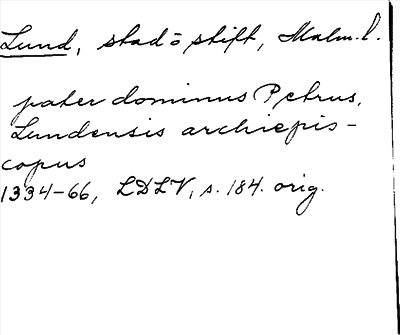 Lund, stad o stift, Malm. l.
pater dominus Petrus,
Lundensis archiepis-
copus
1334-66, LDLV, s. 184. orig.